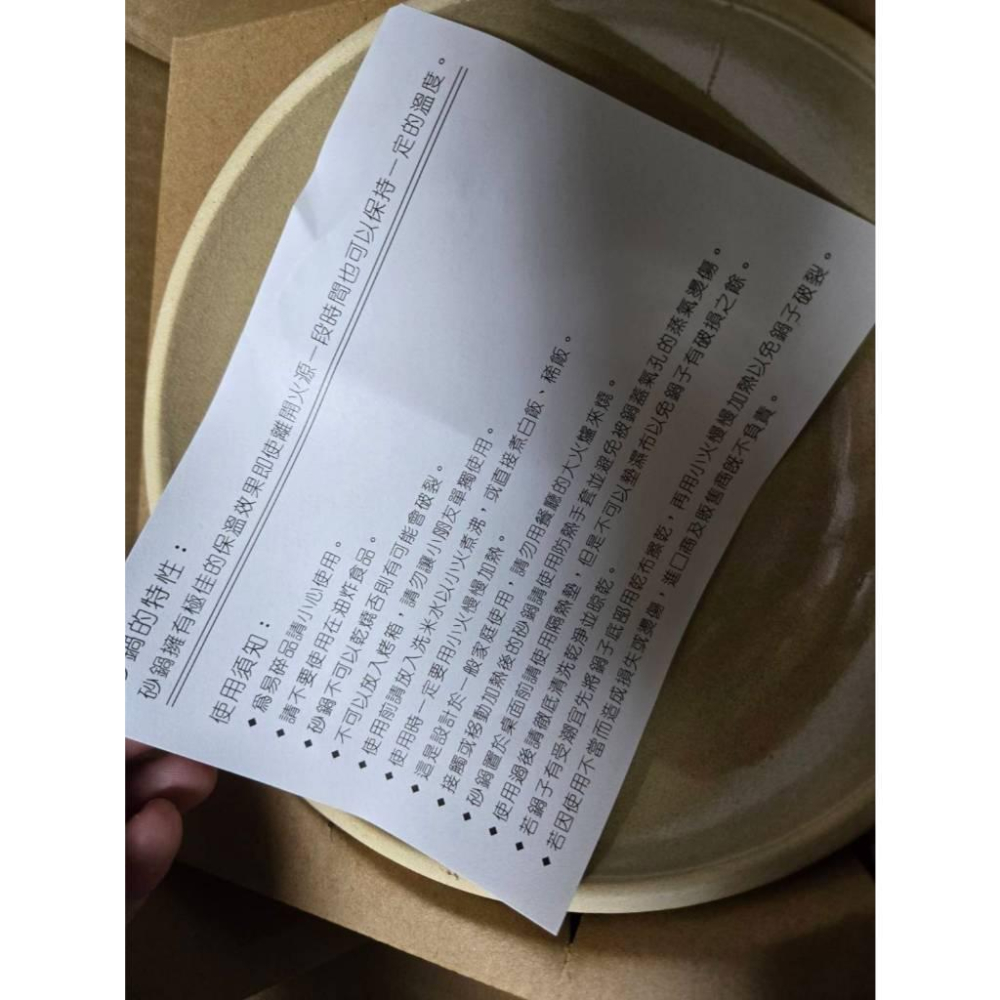 鍋的特性：
砂鍋擁有極佳的保溫效果即使離開火源一段時間也可以保持一定的溫度。
使用須知：
◆為易碎品請小心使用。
◆請不要使用在油炸食品。
◆砂鍋不可以乾燒否則有可能會破裂。
◆不可以放入烤箱，請勿讓小朋友單獨使用。
◆使用前請放入洗米水以小火煮沸，或直接煮白飯、稀飯。
◆使用時一定要用小火慢慢加熱。
◆這是設計於一般家庭使用，請勿用餐廳的大火爐來燒。
◆接觸或移動加熱後的砂鍋請使用防熱手套並避免被鍋蓋蒸氣孔的蒸氣燙傷。
◆砂鍋置於桌面前請使用隔熱墊，但是不可以墊濕布以免鍋子有破損之餘。
◆使用過後請徹底清洗乾淨並晾乾。
◆若鍋子有受潮宜先將鍋子底部用乾布擦乾，再用小火慢慢加熱以免鍋子破裂。
◆若因使用不當而造成損失或燙傷，進口商及販售商既不負責。